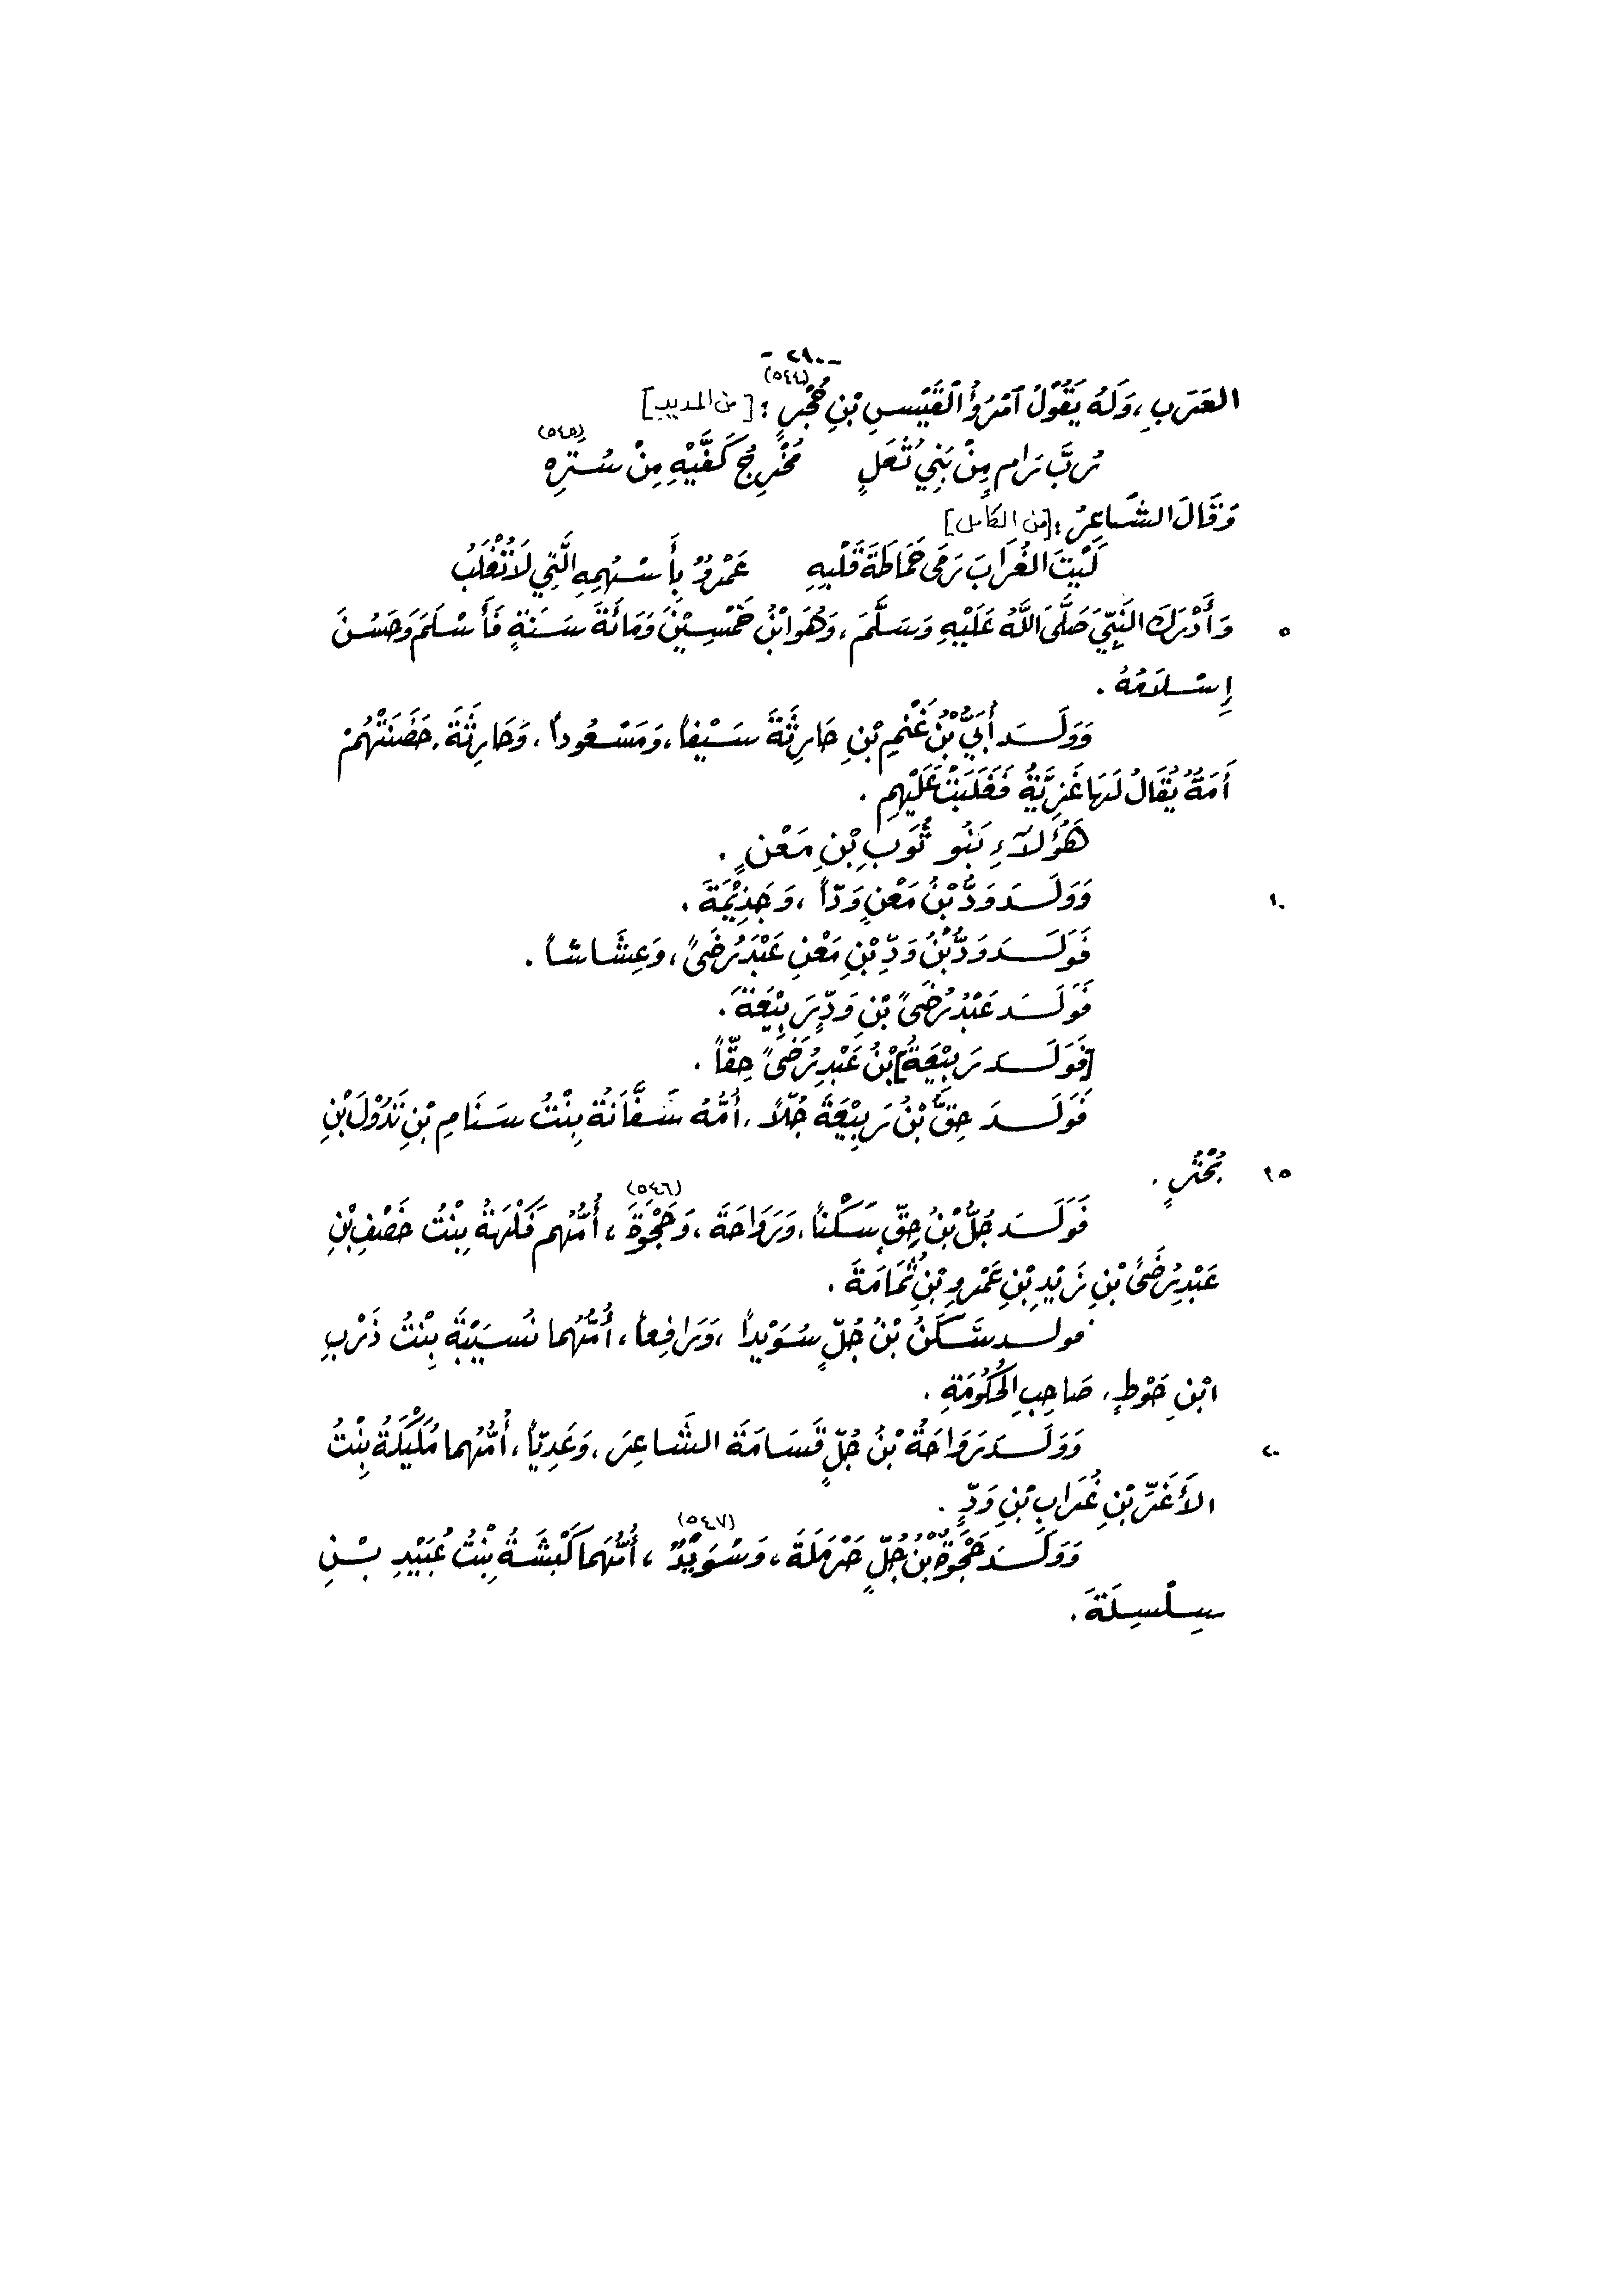 - ٢٩٠ -
العَرَبِ، وَلَهُ يَقُوْلُ ٱمْرُؤُ ٱلْقَيْسِ بْنِ حُجْرٍ (٥٤٤) : [من المديد]
رُبَّ رَامٍ مِنْ بَنِي ثُعَلٍ مُخْرِجٍ كَفَّيْهِ مِنْ سُتَرِهِ (٥٤٥)
وَقَالَ الشَّاعِرُ : [من الكامل]
لَيْتَ الغُرَابَ رَمَى حَمَاطَةَ قَلْبِهِ عَمْرٌو بِأَسْهُمِهِ الَّتِي لَا تُلْغَبُ
٥ وَأَدْرَكَ النَّبِيَّ صَلَّى اللَّهُ عَلَيْهِ وَسَلَّمَ، وَهُوَ ابْنُ خَمْسِيْنَ وَمَائَةَ سَنَةٍ فَأَسْلَمَ وَحَسُنَ
إِسْلَامُهُ .
وَوَلَدَ أُبَيُّ بْنُ غَنْمِ بْنِ حَارِثَةَ سَيْفاً، وَمَسْعُوداً، وَحَارِثَةَ، حَضَنَتْهُمْ
أَمَةٌ يُقَالُ لَهَا غَزِيَّةُ فَغَلَبَتْ عَلَيْهِم .
هَؤُلَآءِ بَنُو ثُوَبِ بْنِ مَعْنٍ .
١٠ وَوَلَدَ وَدُّ بْنُ مَعْنٍ وَدّاً ، وَجَذِيْمَةَ .
فَوَلَدَ وَدُّ بْنُ وَدِّ بْنِ مَعْنِ عَبْدَ رُضَىً، وَعِشَاشاً .
فَوَلَدَ عَبْدُ رُضَىً بْنِ وَدٍّ رَبِيْعَةَ .
[فَوَلَدَ رَبِيْعَةُ] بْنُ عَبْدِ رُضَىً حِقّاً .
فَوَلَدَ حِقُّ بْنُ رَبِيْعَةَ جُلّاً، أُمُّهُ سَفَّانَةُ بِنْتُ سَنَامِ بْنِ تَدُوْلَ بْنِ
١٥ بُحْتُرٍ .
فَوَلَدَ جُلُّ بْنُ حِقٍّ سَكْناً، وَرَوَاحَةَ، وَحَجْوَةَ (٥٤٦)، أُمُّهُم فَكْهَةُ بِنْتُ خَصْفِ بْنِ
عَبْدِ رُضَىً بْنِ زَيْدِ بْنِ عَمْرِو بْنِ ثُمَامَةَ .
فولد سَكَنُ بْنُ جُلٍّ سُوَيْداً ، وَرَافِعاً، أُمُّهُما نُسَيْبَةُ بِنْتُ ذَرْبِ
ابْنِ حَوْطٍ، صَاحِبِ الحُكُومَةِ .
٢٠ وَوَلَدَ رَوَاحَةُ بْنُ جُلٍّ قَسَامَةَ الشَّاعِرَ، وَعَدِيّاً، أُمُّهُما مُلَيْكَةُ بِنْتُ
الأَغَرِّ بْنِ غُرَابِ بْنِ وَدٍّ .
وَوَلَدَ حَجْوَةُ بْنُ جُلٍّ حَرْمَلَةَ، وَسُوَيْدٌ (٥٤٧)، أُمُّهُمَا كَبْشَةُ بِنْتُ عُبَيْدِ بْنِ
سِلْسِلَةَ .